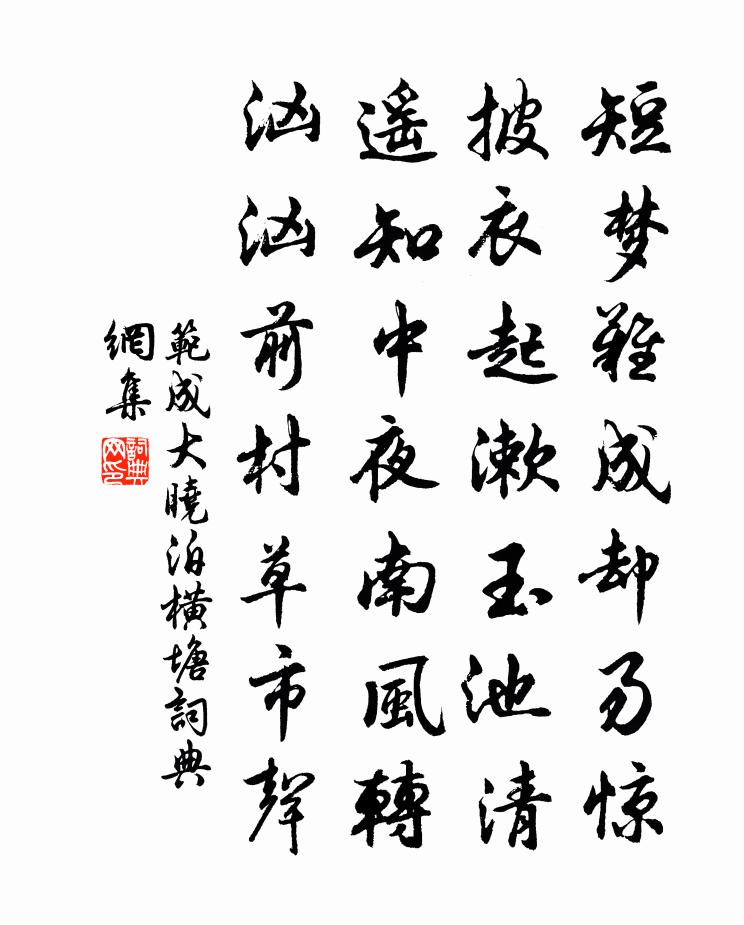 短梦難成却易惊
披衣起漱玉池清
遥知中夜南風轉
汹汹前村草市聲
範成大曉泊橫塘詞典
網集
詞典網印